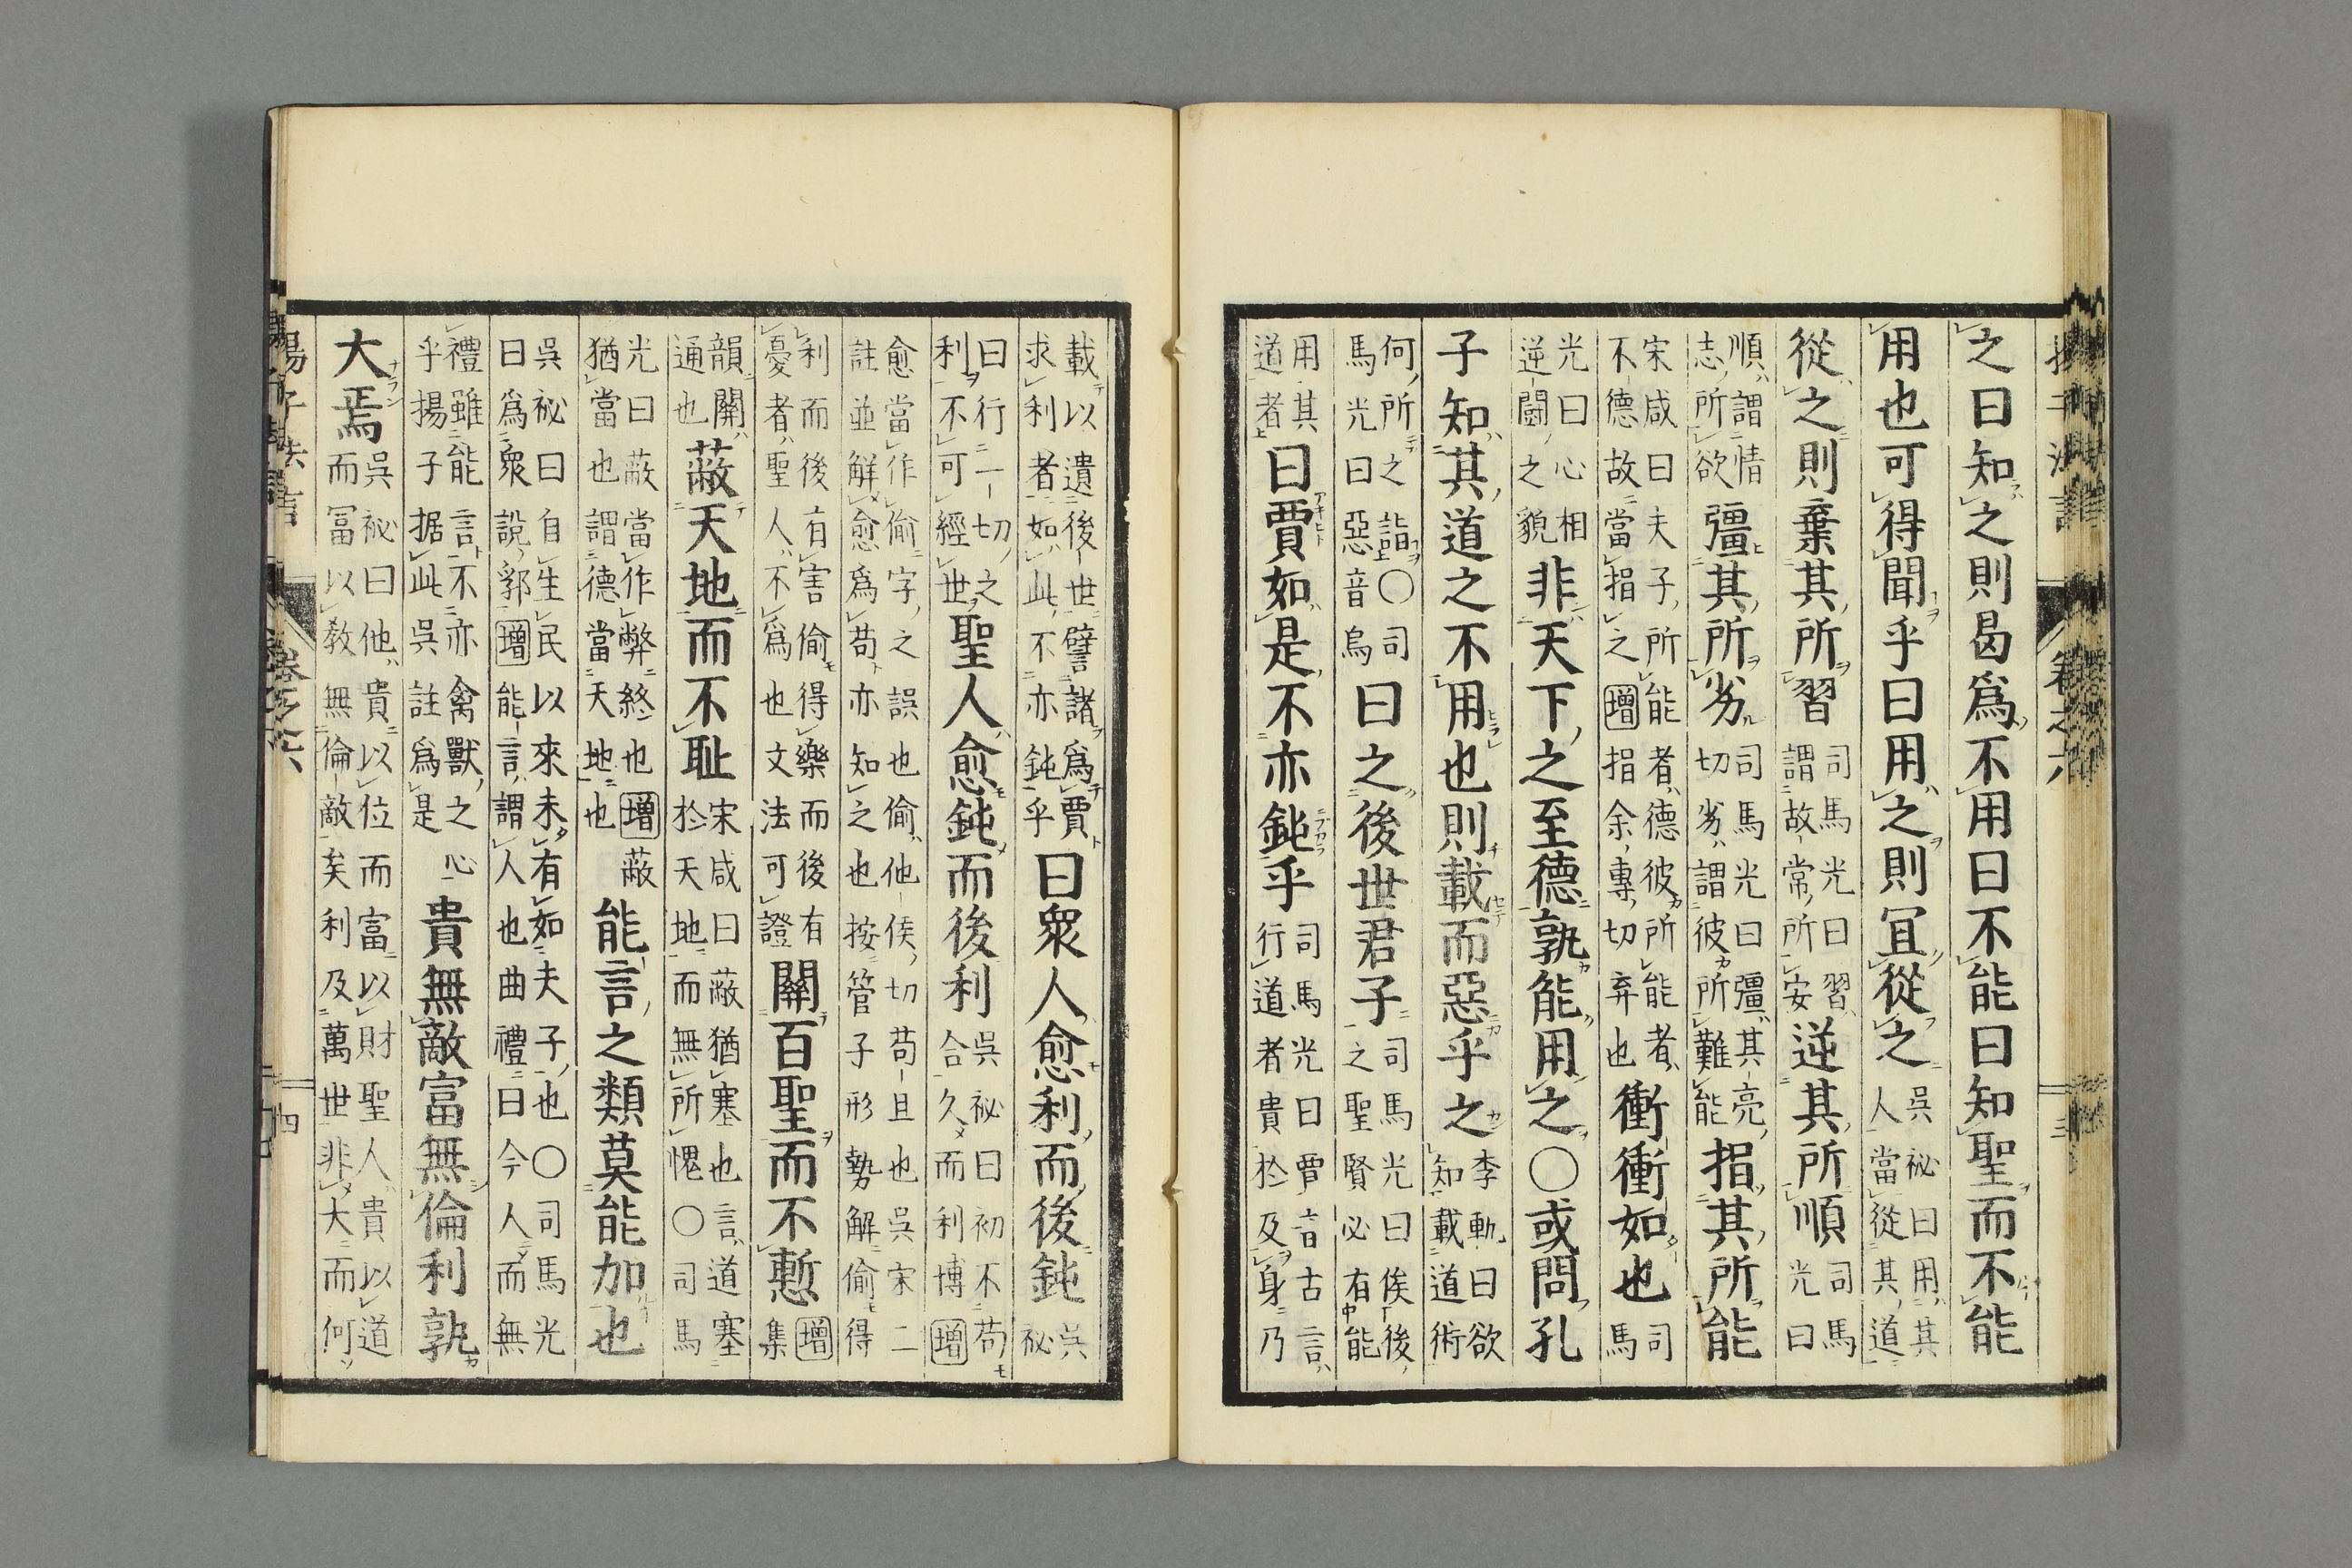 之曰知之則曷爲不用曰不能曰知聖而不能
用也可得聞乎曰用之則冝從之吳祕曰用其人當從其道
從之則棄其所習司馬光曰習謂故常所安逆其所順司馬光曰
順謂情志所欲彊其所劣司馬光曰彊其亮切劣謂彼所難能捐其所能
宋咸曰夫子所能者德彼所能者不德故當捐之增捐余專切弃也衝衝如也司馬
光曰心相逆鬪之貌非天下之至德孰能用之〇或問孔
子知其道之不用也則載而惡乎之李軌曰欲知載道術
何所之詣〇司馬光曰惡音烏曰之後世君子司馬光曰俟後之聖賢必有能
用其道者曰賈如是不亦鈍乎司馬光曰賈音古言行道者貴於及身乃
載以遺後世譬諸爲賈求利者如此不亦鈍乎曰衆人愈利而後鈍吳祕
曰行一切之利不可經世聖人愈鈍而後利吳祕曰初不苟合久而利博增
愈當作偷字之誤也偷他侯切苟且也吳宋二註並解愈爲苟亦知之也按管子形勢解偷得
利而後有害偷得樂而後有憂者聖人不爲也文法可證關百聖而不慙增集
韻關通也蔽天地而不耻宋咸曰蔽猶塞也言道塞於天地而無所愧〇司馬
光曰蔽當作弊終也猶當也謂德當天地也增蔽能言之類莫能加也
吳祕曰自生民以來未有如夫子也〇司馬光曰爲衆說郛增能言謂人也曲禮曰今人而無
禮雖能言不亦禽獸之心乎揚子据此吳註爲是貴無敵富無倫利孰
大焉吳祕曰他貴以位而富以財聖人貴以道而冨以敎無倫敵矣利及萬世非大而何
揚子法言
卷之六
四